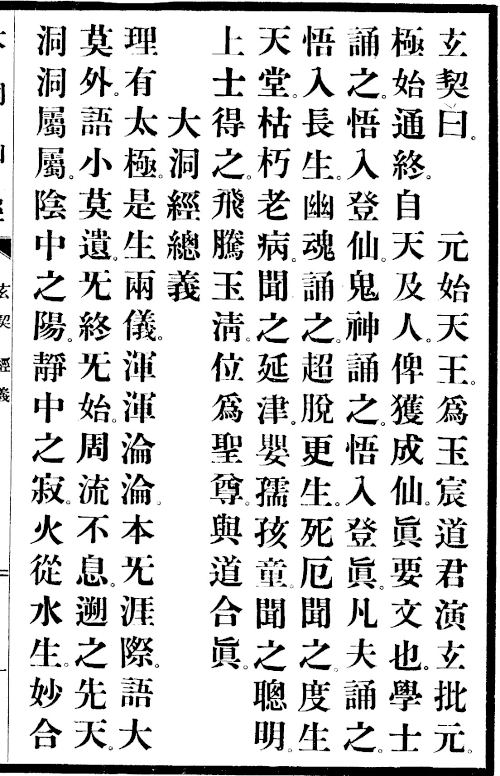 玄契曰。　元始天王。爲玉宸道君演玄批元。
極始通終。自天及人。俾獲成仙。眞要文也。學士
誦之。悟入登仙。鬼神誦之。悟入登眞。凡夫誦之。
悟入長生。幽魂誦之。超脫更生。死厄聞之。度生
天堂。枯朽老病。聞之延津。嬰孺孩童。聞之聰明。
上士得之。飛騰玉淸。位爲聖尊。與道合眞。
大洞經總義
理有太極。是生兩儀。渾渾淪淪。本旡涯際。語大
莫外。語小莫遺。旡終旡始。周流不息。遡之先天。
洞洞屬屬。陰中之陽。靜中之寂。火從水生。妙合
玄契　經義
一